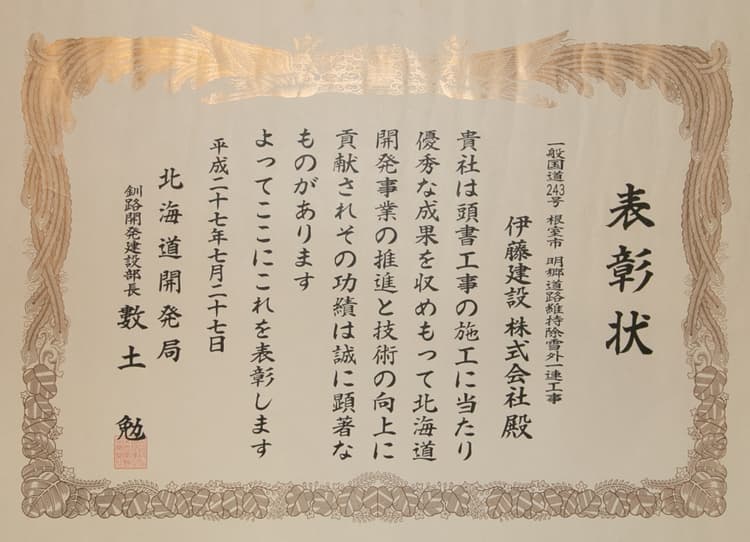 表彰状
一般国道243号 根室市 明郷道路維持除雪外一連工事
伊藤建設 株式会社 殿
貴社は頭書工事の施工に当たり
優秀な成果を収めもって北海道
開発事業の推進と技術の向上に
貢献されその功績は誠に顕著な
ものがあります
よってここにこれを表彰します
平成二十七年七月二十七日
北海道開発局
釧路開発建設部長 数土 勉